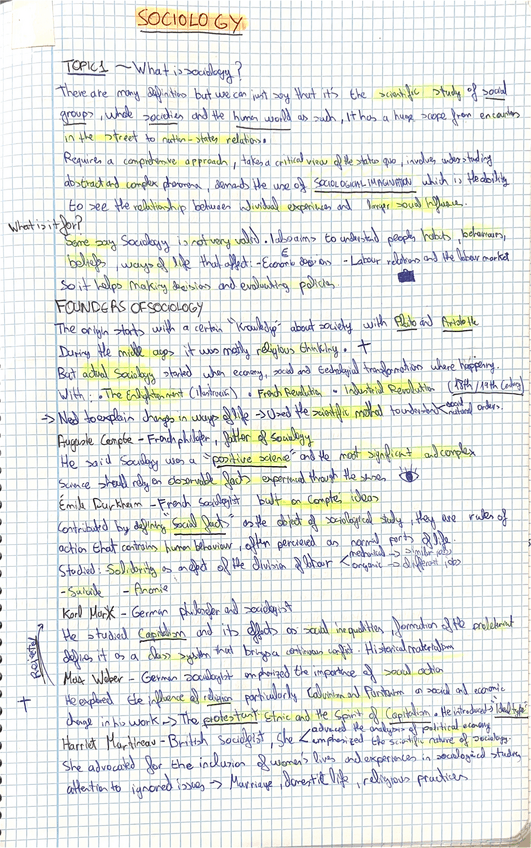 SOCIOLOGY
TOPIC 1 ~ What is sociology?
There are many definition but we can just say that it's the scientific study of social
groups, whole societies and the human world as such, it has a huge scope from encounters
in the street to nation-states relations.
Requires a comprehensive approach, takes a critical view of the status quo, involves understanding
abstract and complex phenomena, demands the use of SOCIOLOGICAL IMAGINATION which is the ability
to see the relationship between individual experiences and larger social influence.
What is it for?
Some say Sociology is not very valid. It also aims to understand people habits, behaviours,
beliefs, ways of life that affect. - Economic decisions - Labour relations and the labour market
So it helps making decisions and evaluating policies.
FOUNDERS OF SOCIOLOGY
The origin starts with a certain "Knowledge" about society with Plato and Aristotle
During the middle ages it was mostly religious thinking.
But actual Sociology started when economy, social and technological transformations where happening.
With: • The Enlightenment • French Revolution • Industrial Revolution (18th/19th Century)
→ Need to explain changes in ways of life → Used the scientific method to understand < social natural orders.
Auguste Compte - French philosopher, father of Sociology
He said Sociology was a "positive science" and the most significant and complex
Science should rely on observable facts experienced through the senses
Émile Durkheim - French Sociologist built on Comptes ideas
Contributed by defining "Social facts" as the object of sociological study, they are rules of
action that constrains human behaviour, often perceived as normal parts of life
Studied: Solidarity as an effect of the division of labour < mechanical → similar jobs organic → different jobs
- Suicide - Anomie
Karl Marx - German philosopher and sociologist
He studied Capitalism and its effects as social inequalities, formation of the proletariat
defines it as a class system that brings a continuous conflict. Historical materialism
Rejected
Max Weber - German sociologist emphasized the importance of social action
He explored the influence of religion particularly Calvinism and Puritanism on social and economic
change in his work → The protestent Ethic and the Spirit of Capitalism. He introduced "Ideal type"
Harriet Martineau - British Sociologist, She < advanced the analysis of political economy emphasized the scientific nature of sociology.
She advocated for the inclusion of women's lives and experiences in sociological studies
attention to ignored issues → Marriage, domestic life, religious practices